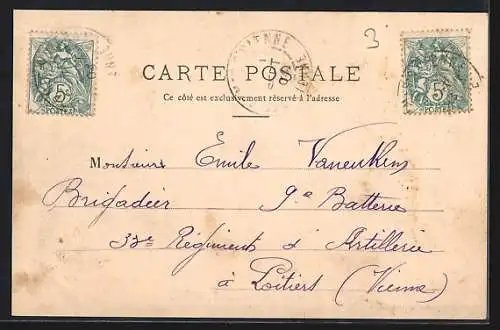 3
CARTE POSTALE
Ce côté est exclusivement réservé à l'adresse
Monsieur Emile
Brigadier 9e Batterie
33e Régiment d'Artillerie
à Poitiers (Vienne)
5c 5c
POSTES POSTES